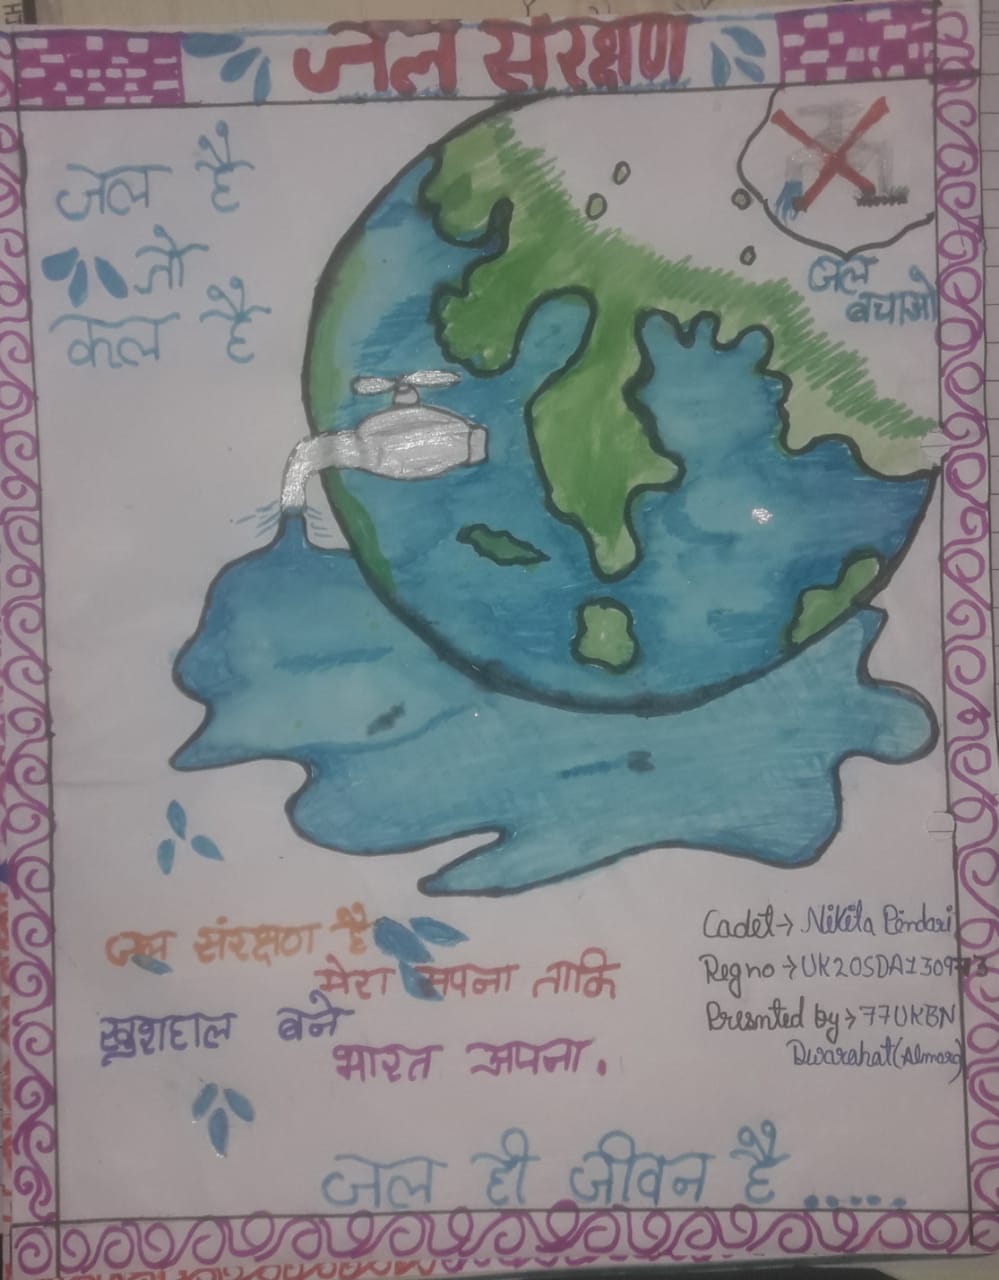 जल संरक्षण
जल है
तो
कल है
जल
बचाओ
जल संरक्षण है
मेरा सपना ताकि
खुशहाल बने
भारत अपना.
Cadet→ Nikita Pendari
Reg no →
Presnted by→77UKBN
Dwarahat(Almora)
जल ही जीवन है .....